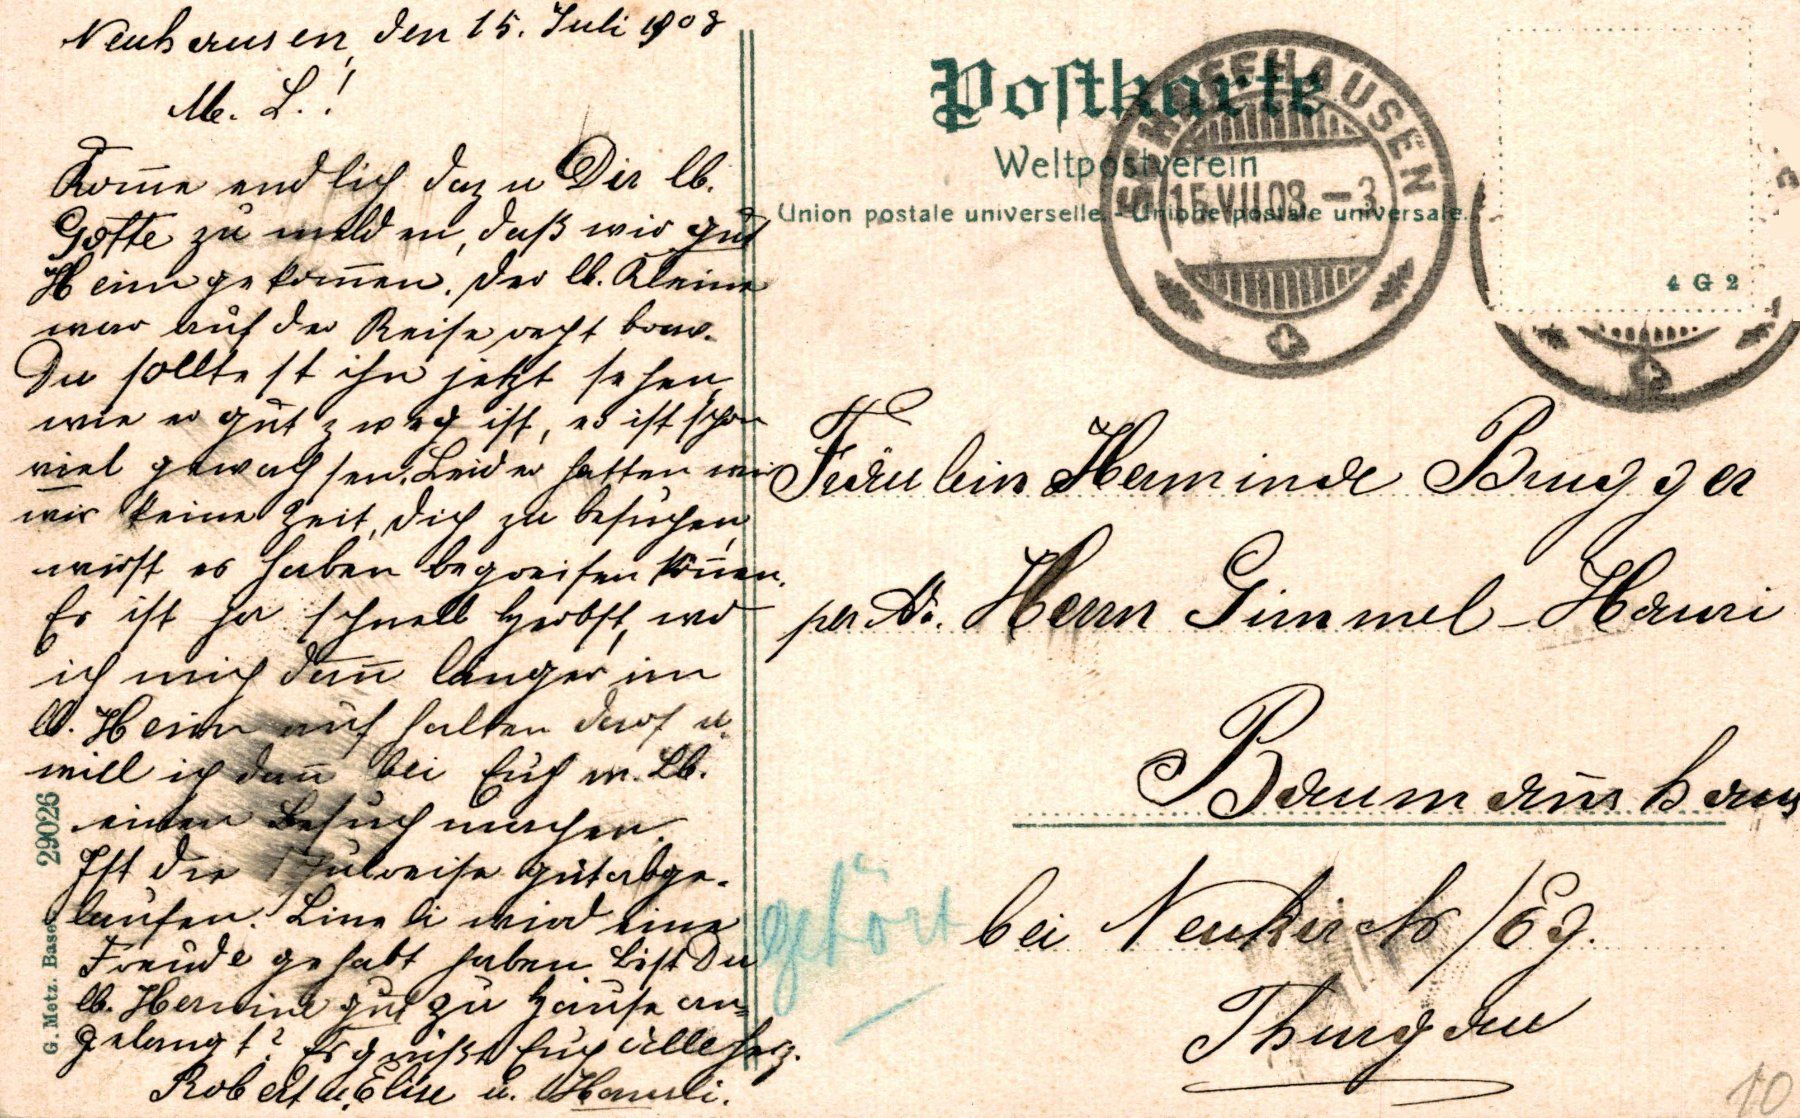 Neuhausen, den 15. Juli 1908
M. L.!
Kom̄e endlich dazu Dir lb.
Gotte zu melden, daß wir gut
Heim gekom̄en. Der lb. Kleine
war auf der Reise recht brav.
Du solltest ihn jetzt sehen,
wie er gut zweg ist, er ist schon
viel gewachsen. Leider hatten wir
wir keine Zeit, dich zu besuchen,
wirst es haben begreifen kön̄en.
Es ist ja schnell Herbst, wo
ich mich dan̄ länger im
lb. Heim aufhalten darf u.
will ich dan̄ bei Euch m. Lb.
einen Besuch machen.
Ist die Schulreise gut abge-
laufen? Lineli wird eine
Freude gehabt haben. Bist Du
lb. Hermine gut zu Hause an-
gelangt? Es grüßt Euch alle herz.
Robert u. Elise u. Hansli.
G. Metz. Basel. 29026
Postkarte
Weltpostverein
Union postale universelle. - Unione postale universale.
15.VII.08 - 3
4 G 2
Fräulein Herminde Brugger
per Ad. Herrn Gimmel-Hauri
Bauman̄shaus
bei Neukirch /Eg.
Thurgau
gehört
10